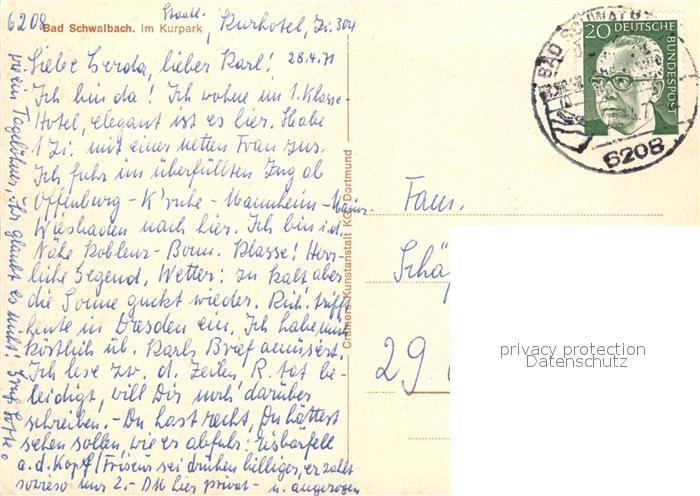 6208
Bad Schwalbach. Im Kurpark
Staatl. Kurhotel, Zi. 304
28.4.71
Liebe Gerda, lieber Karl!
Ich bin da! Ich wohne im 1. Klasse-
Hotel, elegant ist es hier. Habe
1 Zi. mit einer netten Frau zus.
Ich fuhr im überfüllten Zug ab
Offenburg - K'ruhe - Mannheim - Mainz
Wiesbaden nach hier. Ich bin i.d.
Nähe Koblenz - Bonn. Klasse! Herr-
liche Gegend. Wetter: zu kalt, aber
die Sonne guckt wieder. Rich. trifft
heute in Dresden ein. Ich habe mich
köstlich üb. Karls Brief amüsiert.
Ich lese zw. d. Zeilen, R. tat be-
leidigt, will Dir noch darüber
schreiben. - Du hast recht, Du hättest
sehen sollen, wie er abfuhr: Eisbärfell
a.d. Kopf (Friseur sei drüben billiger, er zahlt
sowieso nur 2.- DM hier privat - u. angezogen
wie ein Tagelöhner, Ihr glaubt es nicht! Gruß Lotte.
Cramers Kunstanstalt KG, Dortmund
BAD SCHWALBACH
6208
20 DEUTSCHE BUNDESPOST
Fam.
Schäf
29
privacy protection
Datenschutz